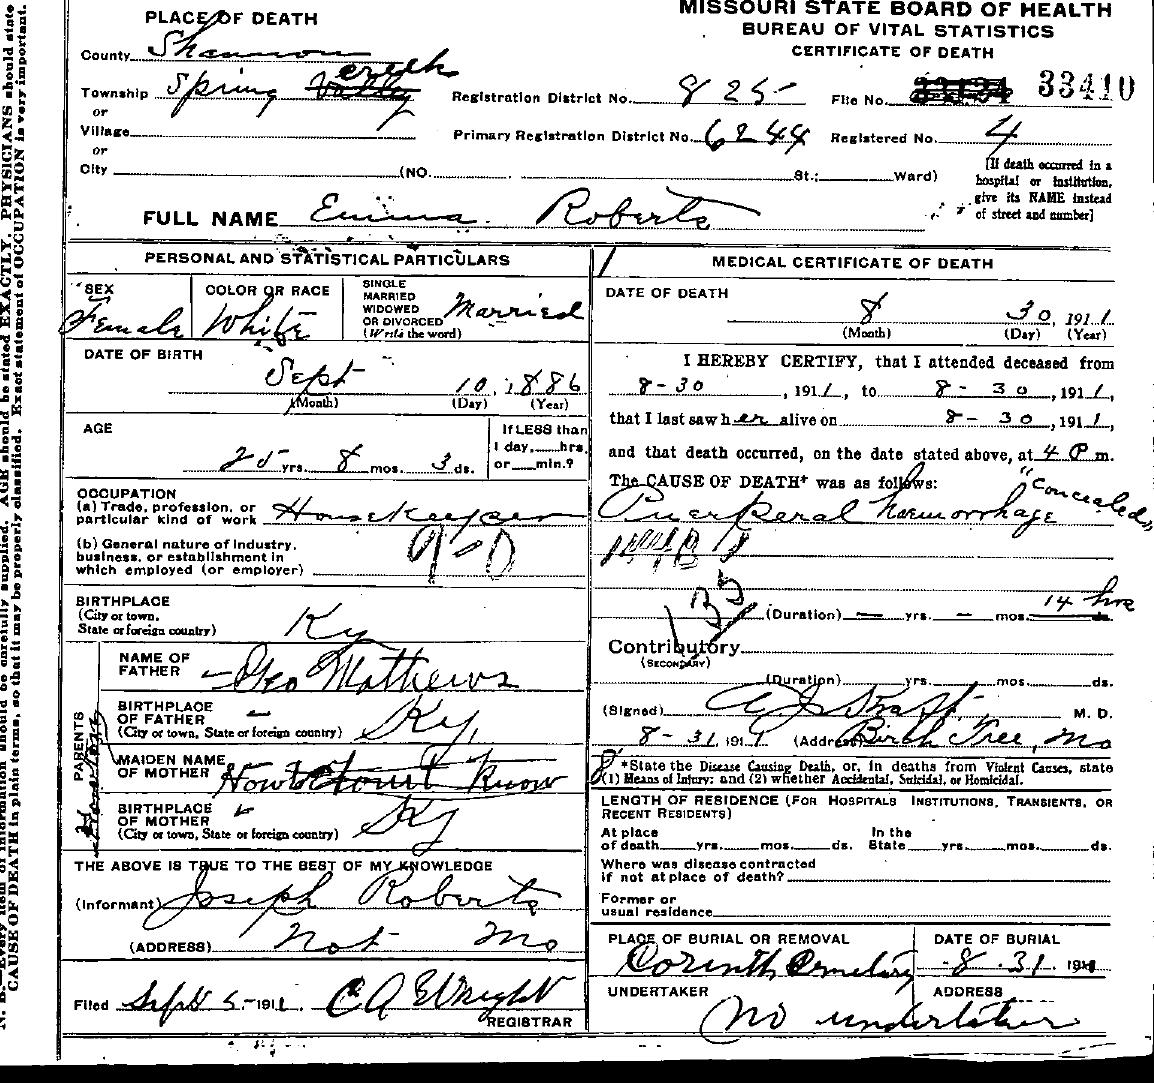 MISSOURI STATE BOARD OF HEALTH
BUREAU OF VITAL STATISTICS
CERTIFICATE OF DEATH
PLACE OF DEATH
County Shannon
Township Spring Valley creek
or
Village
or
City (NO. St.; Ward)
Registration District No. 825
File No. 33410
Primary Registration District No. 6244
Registered No. 4
[If death occurred in a
hospital or institution,
give its NAME instead
of street and number]
FULL NAME Emma Roberts
PERSONAL AND STATISTICAL PARTICULARS
SEX
Female
COLOR OR RACE
White
SINGLE
MARRIED
WIDOWED
OR DIVORCED
(Write the word)
Married
DATE OF BIRTH
Sept 10, 1886
(Month) (Day) (Year)
AGE
25 yrs. 8 mos. 3 ds.
If LESS than
1 day, hrs.
or min.?
OCCUPATION
(a) Trade, profession, or
particular kind of work Housekeeper
(b) General nature of industry,
business, or establishment in
which employed (or employer)
9-0
BIRTHPLACE
(City or town,
State or foreign country) Ky
PARENTS
NAME OF
FATHER Geo Mathews
BIRTHPLACE
OF FATHER
(City or town, State or foreign country) Ky,
MAIDEN NAME
OF MOTHER Know
BIRTHPLACE
OF MOTHER
(City or town, State or foreign country) Ky
THE ABOVE IS TRUE TO THE BEST OF MY KNOWLEDGE
(Informant) Joseph Roberts
(ADDRESS) Not Mo
Filed Sept 5-1911 C A Wright
REGISTRAR
MEDICAL CERTIFICATE OF DEATH
DATE OF DEATH
8 30, 1911
(Month) (Day) (Year)
I HEREBY CERTIFY, that I attended deceased from
8-30, 1911, to 8-30, 1911,
that I last saw her alive on 8-30, 1911,
and that death occurred, on the date stated above, at 4 P m.
The CAUSE OF DEATH* was as follows:
Puerperal haemorrhage "Concealed"
135
(Duration) — yrs. — mos. 14 hrs
Contributory
(SECONDARY)
(Duration) yrs. mos. ds.
(Signed) M. D.
8-31, 1911 (Address) Birch Tree, Mo
*State the Disease Causing Death, or, in deaths from Violent Causes, state
(1) Means of Injury; and (2) whether Accidental, Suicidal, or Homicidal.
LENGTH OF RESIDENCE (FOR HOSPITALS INSTITUTIONS, TRANSIENTS, OR
RECENT RESIDENTS)
At place
of death yrs. mos. ds.
In the
State yrs. mos. ds.
Where was disease contracted
if not at place of death?
Former or
usual residence
PLACE OF BURIAL OR REMOVAL
Corinth Cemetary
DATE OF BURIAL
8-31, 1911
UNDERTAKER
No undertaker
ADDRESS
N. B.—Every item of information should be carefully supplied. AGE should be stated EXACTLY. PHYSICIANS should state
CAUSE OF DEATH in plain terms, so that it may be properly classified. Exact statement of OCCUPATION is very important.